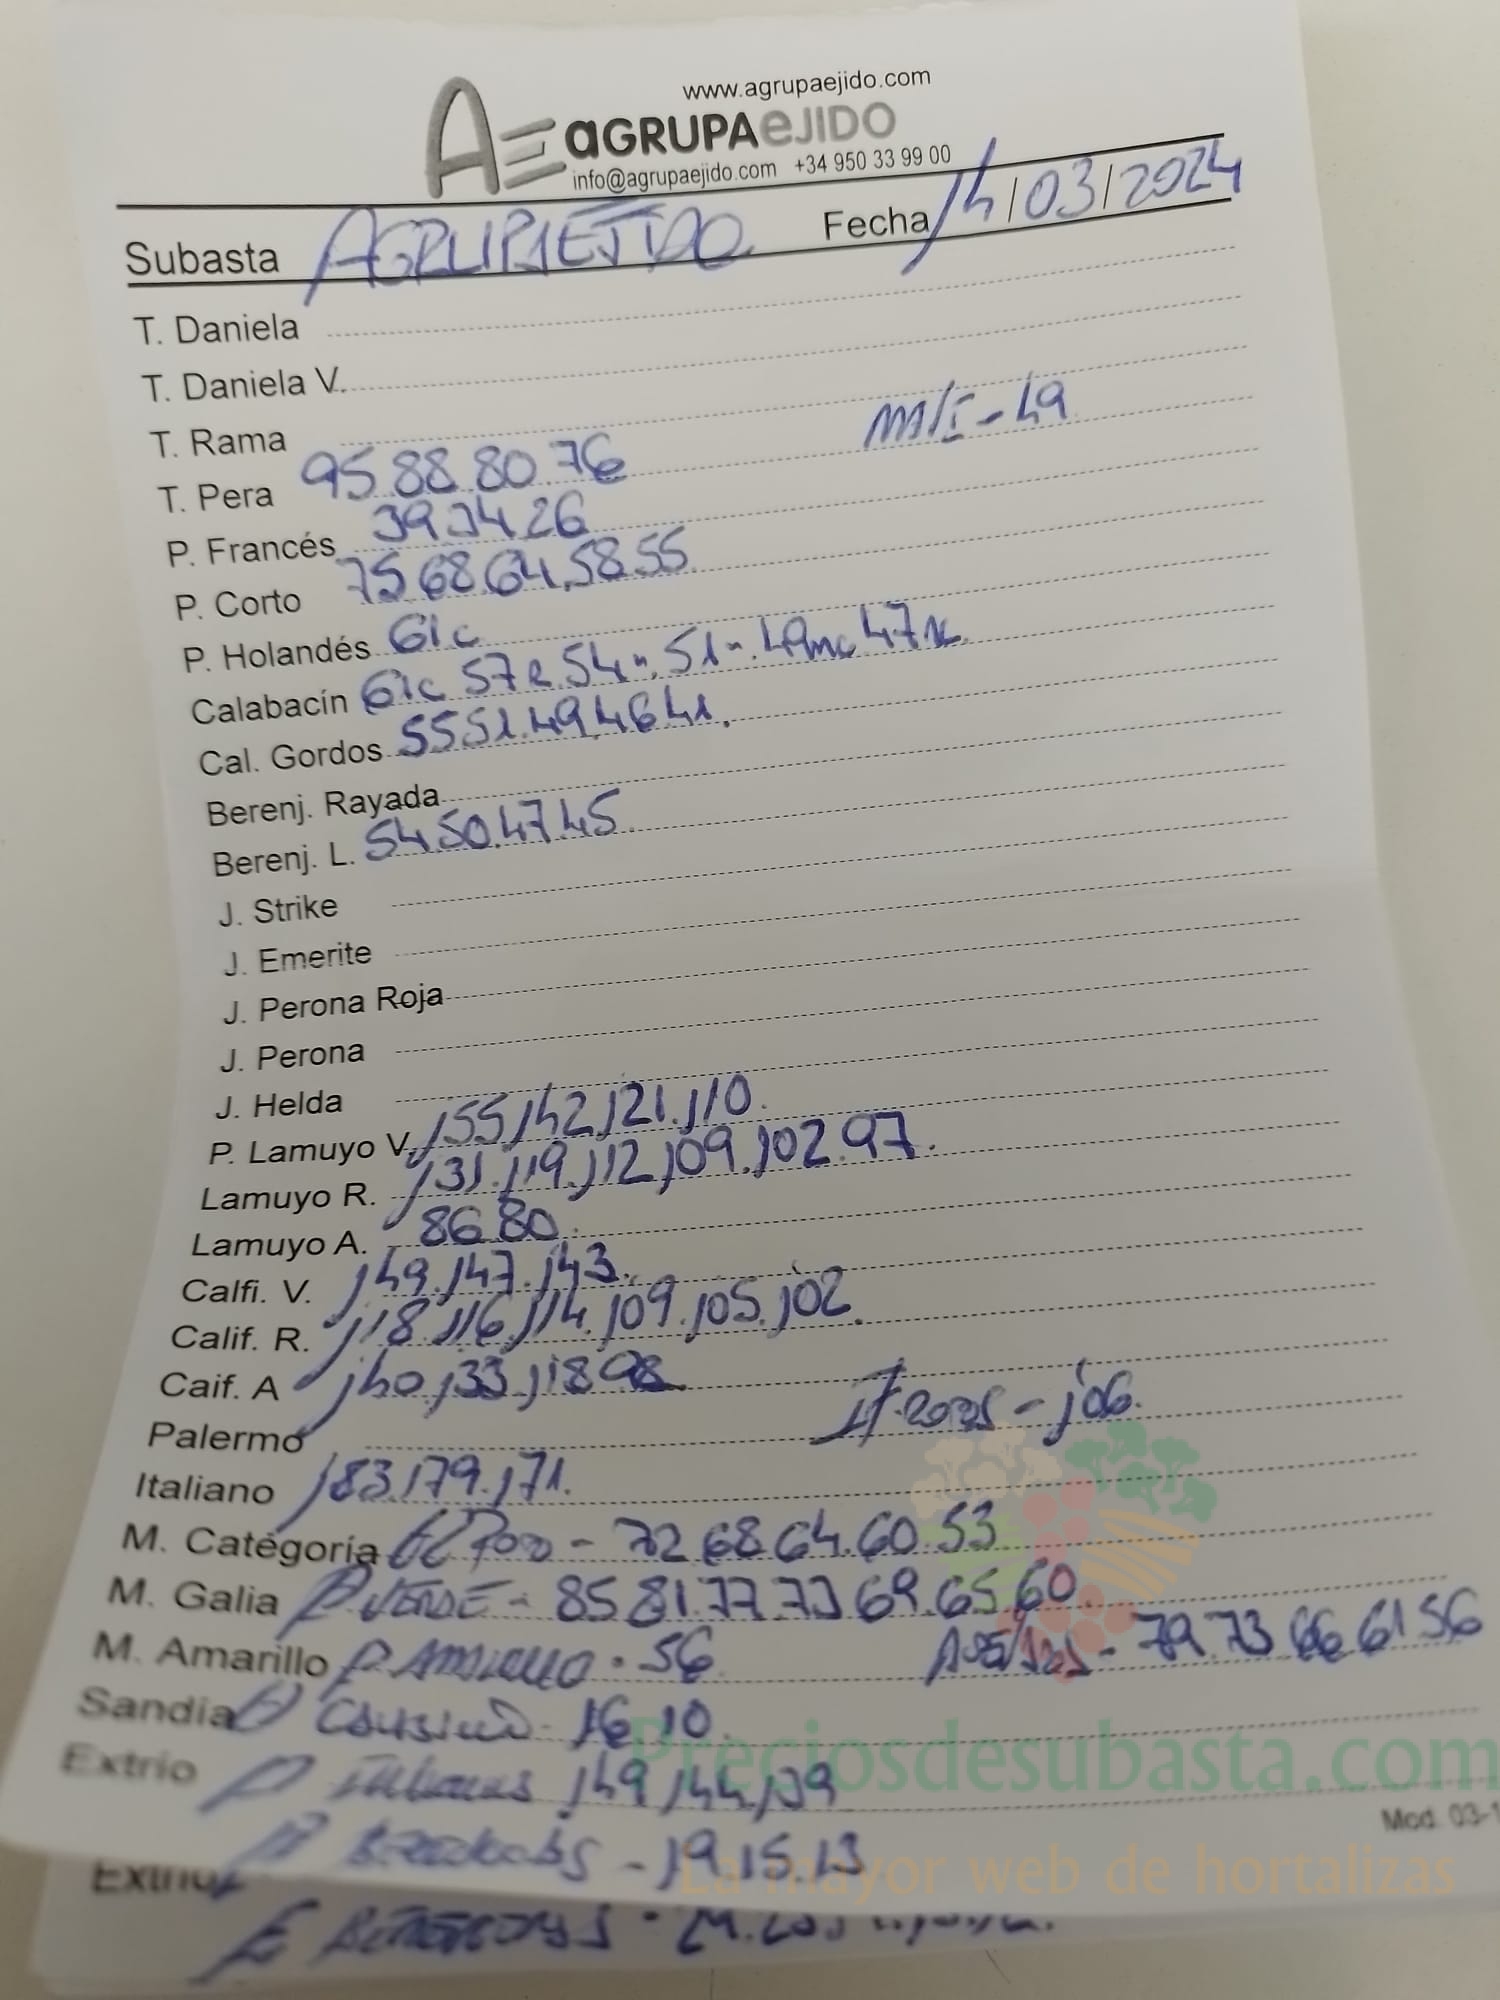 www.agrupaejido.com
AE aGRUPAeJIDO
info@agrupaejido.com +34 950 33 99 00
Subasta AGRUPAEJIDO Fecha 14/03/2024
T. Daniela
T. Daniela V.
T. Rama
T. Pera 95.88.80.76 - 49
P. Francés 39.34.26
P. Corto 75.68.64.58.55
P. Holandés 61c
Calabacín 61c 57 54 51 49 47
Cal. Gordos 55.51.49.46.41.
Berenj. Rayada
Berenj. L. 54.50.47.45
J. Strike
J. Emerite
J. Perona Roja
J. Perona
J. Helda
P. Lamuyo V. 155,142,121.110.
Lamuyo R. 131.119.112,109.102.97.
Lamuyo A. 86.80.
Calfi. V. 149.147.143.
Calif. R. 118.116.114.109.105.102.
Caif. A 140,133,118 98
Palermo - 106.
Italiano 183.179.171.
M. Categoría - 72.68.64.60.53
M. Galia P VERDE - 85.81.77.73.69.65.60.
M. Amarillo P. AMARILLO - 56 - 79.73 66 61 56
Sandia 16.10.
Extrio 149,144,139
Mod. 03-1
- 19.15.13
Extrio
Preciosdesubasta.com
La mayor web de hortalizas